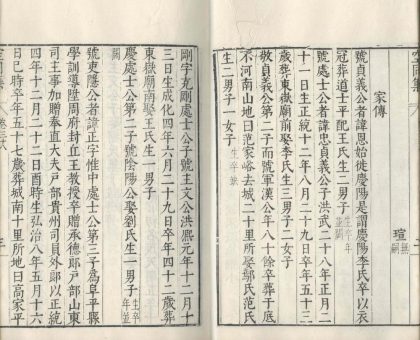 瑄 無嗣
家傳
號貞義公者諱恩始徙慶陽是謂慶陽李氏卒以衣
冠葬道士平配王氏生二男子 生卒年並闕
號處士公者諱忠貞義公子洪武二十八年正月二
十一日生正統十二年八月二十九日卒年五十三
歲葬東嶽廟前娶李氏生三男子二女子
敬貞義公第二子而號軍漢公年八十餘卒葬于底
不河南山地曰范家峪去城二十里所娶鄔氏范氏
生二男子一女子 生卒並
剛字克剛處士公子號主文公洪熙元年十二月十
三日生成化四年六月二十九日卒年四十二歲葬
東嶽廟南娶王氏生一男子
慶處士公第二子號陰陽公娶劉氏生一男子 生卒年並
闕
號東隱公者諱正字惟中處士公第三子為阜平縣
學訓導陞周府封丘王教授卒贈承德郎戶部山東
司主事加贈奉直大夫戶部貴州司員外郎以正統
四年十二月二十二日酉時生弘治八年五月十六
日巳時卒年五十七歲葬城南十里所地曰高家平
空同集